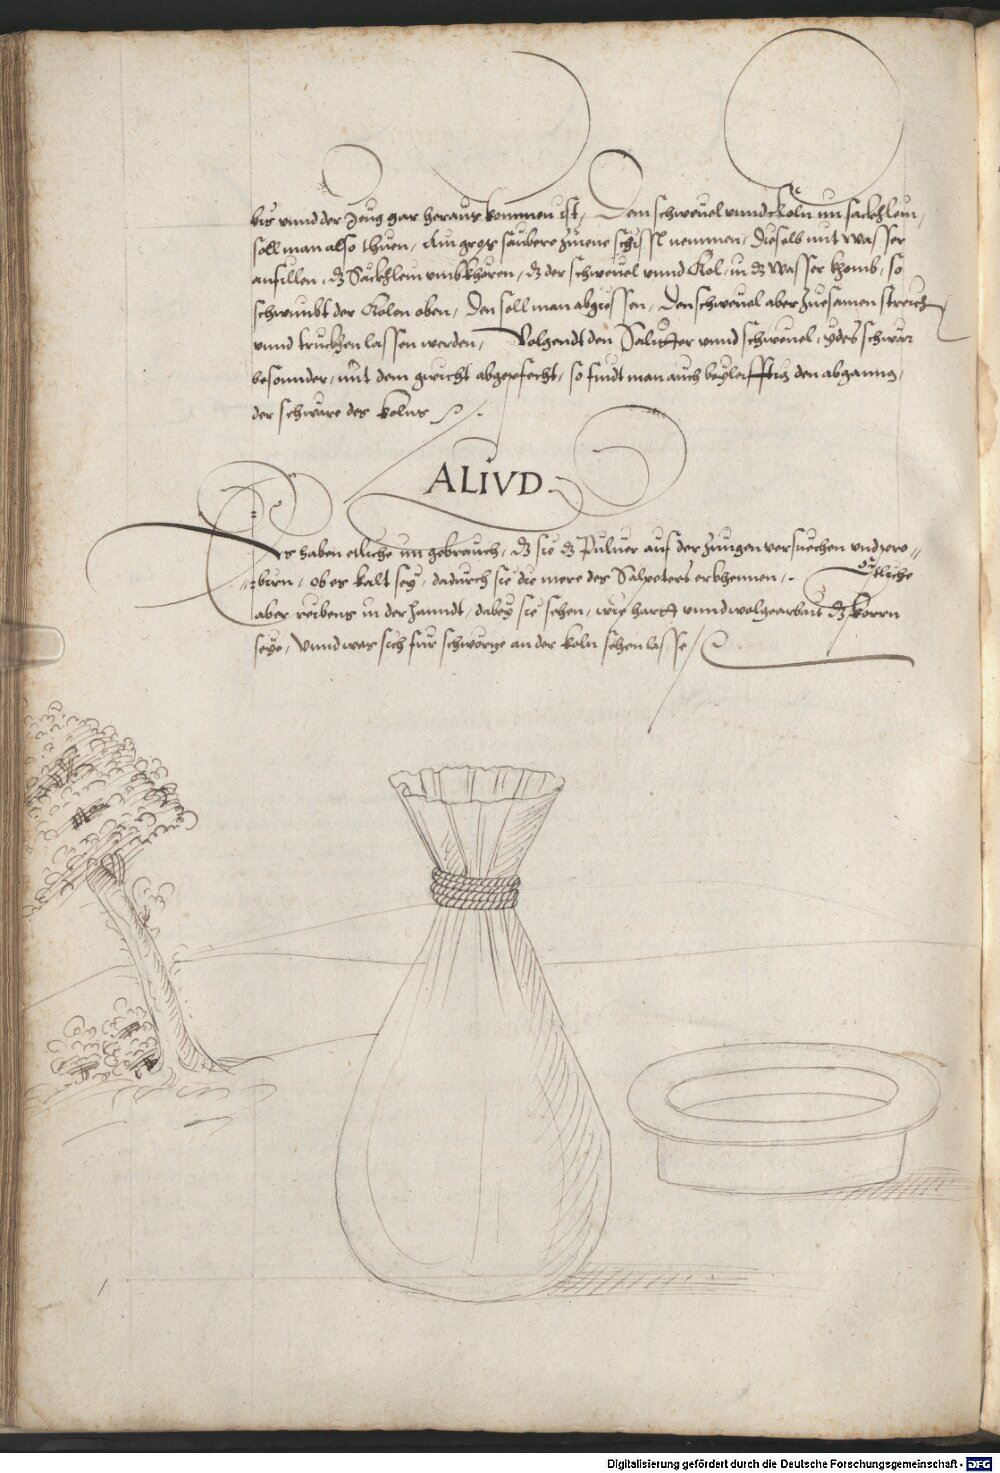 bis vnnd der Zeug gar heraus kommen ist, Dem schwevel vnnd Koln im säckhlein,
soll man also thuen, Ain gross säubere Zinene schissl nemmen, Dieselb mit Wasser
anfillen, dz Säckhlein vmbkhören, dz der schwevel vnnd Kol, in dz Wasser khomb, so
schwimbt der Kolen oben, Den soll man abgiessen, Den schwevel aber zuesamen streich
vnnd truckhen lassen werden, Volgendt den Saliter vnnd schwevel, ydes schwär
besonnder, mit dem gwicht abgepfecht, so findt man auch beyleifftig den abganng,
der schwäre des kolns
ALIVD.
Es haben etliche im gebrauch, dz sie dz Puluer auf der Zungen versuechen vnd pro=
=biern, ob es kalt sey, dadurch sie die mere des Salpeters erkhennen, Etliche
aber reibens in der hanndt, dabey sie sehen, wie hartt vnnd wolgearbait dz korrn
seye, Vnnd was sich für schwörtze an der koln sehen lasse
Digitalisierung gefördert durch die Deutsche Forschungsgemeinschaft - DFG